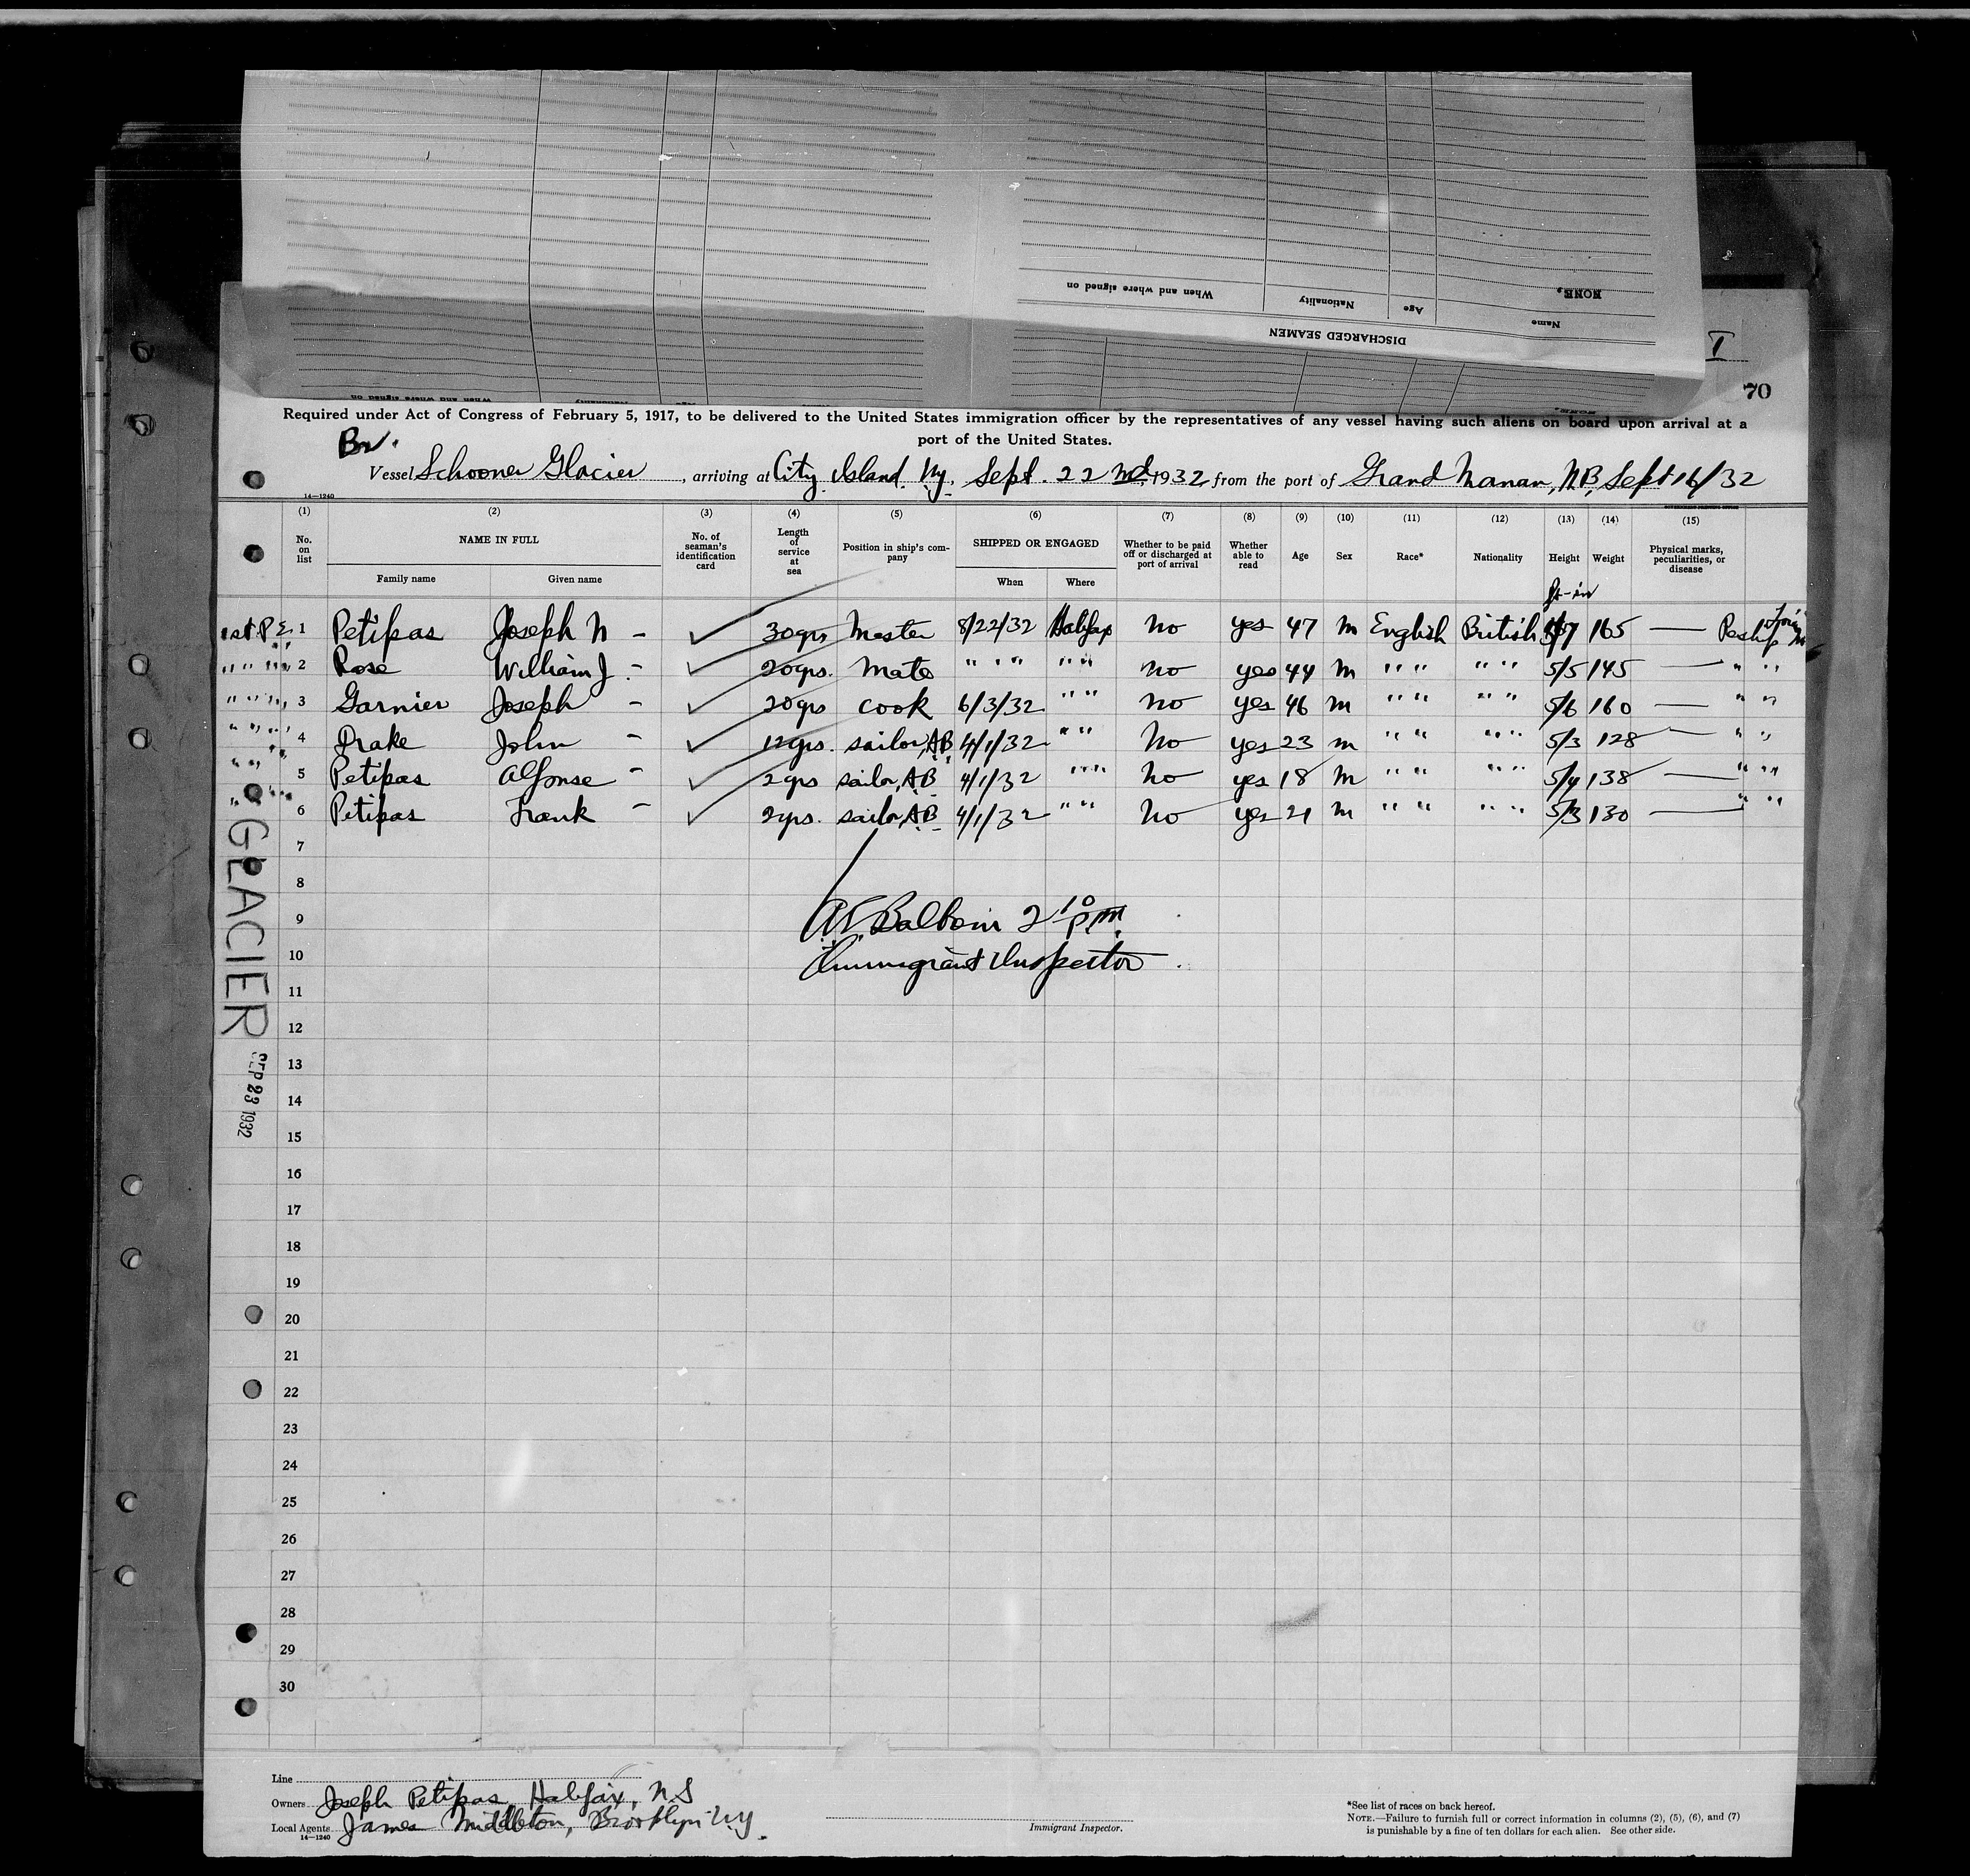 When and where signed on
Nationality
Age
NONE,
Name
DISCHARGED SEAMEN
I
70
Required under Act of Congress of February 5, 1917, to be delivered to the United States immigration officer by the representatives of any vessel having such aliens on board upon arrival at a
port of the United States.
Br.
Vessel Schooner Glacier, arriving at City Island. Ny. Sept. 22nd, 1932 from the port of Grand Manan, NB, Sept 16/32
14—1240
(1) (2) (3) (4) (5) (6) (7) (8) (9) (10) (11) (12) (13) (14) (15)
No. on list NAME IN FULL No. of seaman's identification card Length of service at sea Position in ship's company SHIPPED OR ENGAGED Whether to be paid off or discharged at port of arrival Whether able to read Age Sex Race* Nationality Height Weight Physical marks, peculiarities, or disease
Family name Given name When Where
ft-in
1st P E. 1 Petipas Joseph N - 30yrs Master 8/22/32 Halifax No yes 47 m English British 5/7 165 —
" " " " 2 Rose William J. - 20yrs. Mate " " " " " No yes 44 m " " " " 5/5 145 — " "
" " " " 3 Garnier Joseph - 20yrs cook 6/3/32 " " No yes 46 m " " " " 5/6 160 — " "
" " " " 4 Drake John - 12yrs. sailor, AB 4/1/32 " " No yes 23 m " " " " 5/3 128 — " "
" " " 5 Petipas Alfonse - 2yrs sailor, AB 4/1/32 " " No yes 18 m " " " " 5/4 138 — " "
" " " 6 Petipas Frank - 2yrs. sailor, AB 4/1/32 " " No yes 21 m " " " " 5/3 130 — " "
7
8
9
10
11
12
13
14
15
16
17
18
19
20
21
22
23
24
25
26
27
28
29
30
2 10 pm.
Immigrant Inspector
GLACIER
SEP 23 1932
Line
Owners Joseph Petipas, Halifax, NS
Local Agents James Middleton, Brooklyn NY.
14—1240
Immigrant Inspector.
*See list of races on back hereof.
NOTE.—Failure to furnish full or correct information in columns (2), (5), (6), and (7)
is punishable by a fine of ten dollars for each alien. See other side.